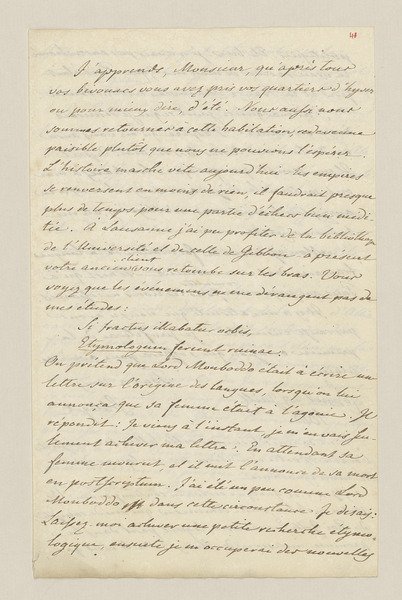 41
J'apprends, Monsieur, qu'après tous
vos bivouacs vous avez pris vos quartiers d'hyver
ou pour mieux dire, d'été. Nous aussi nous
sommes retournés à cette habitation, redevenue
paisible plutôt que nous ne pouvions l'espérer.
L'histoire marche vite aujourdhui: les empires
se renversent en moins de rien, il faudroit presque
plus de temps pour une partie d'échecs bien médi-
tée. À Lausanne j'ai pu profiter de la biblioth.
de l'Université et de celle de Gibbon à présent
votre ancien client vous retombe sur les bras. Vous
voyez que les événemens ne me dérangent pas de
mes études:
Si fractus illabatur orbis,
Etymologum ferient ruinae.
On prétend que Lord Monboddo était à écrire une
lettre sur l'origine des langues, lorsqu'on lui
annonça que sa femme était à l'agonie. Il
répondit: Je viens à l'instant, je m'en vais seu-
lement achever ma lettre. En attendant sa
femme mourut, et il mit l'annonce de sa mort
en postscriptum. J'ai été un peu comme Lord
Monboddo dans cette circonstance. Je disais:
Laissez-moi achever une petite recherche étymo-
logique, ensuite je m'occuperai des nouvelles